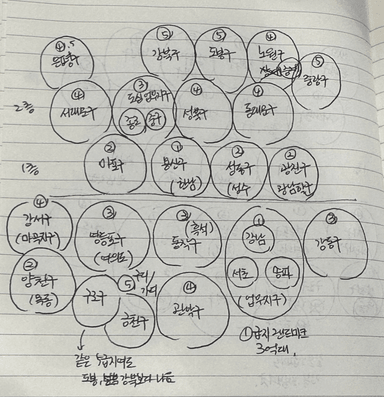 ④.5
은평구
⑤
강북구
⑤
도봉구
④
노원구
⑤
중랑구
2층
④
서대문구
③
도심업무지구
종로 중구
④
성북구
④
동대문구
1층
②
마포구
①
용산구
(한남)
②
성동구
(성수)
②
광진구
광남학군
④
강서구
(마곡지구)
③
영등포구
(여의도)
③
(흑석)
동작구
①
강남
서초 송파
(업무지구)
③
강동구
②
양천구
(목동)
구로구
⑤
금천구
④
관악구
같은 5급지여도
①급지 랜드마크
3억대,